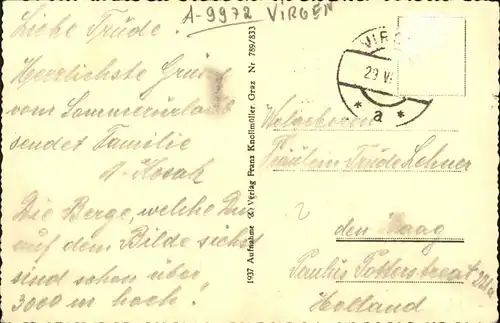 A-9972 VIRGEN
Liebe Trude.
Herrlichste Grüße
vom Sommerurlaub
sendet Familie
Die Berge, welche Du
auf dem Bilde siehst
sind schon über
3000 m hoch."
1937 Aufnahme u. Verlag Franz Knollmüller, Graz Nr. 789/833
VIRG
29 VI
* a *
Wolgeboren
Fräulein Trude Lehner
den Haag
Paulus Potterstraat
Holland